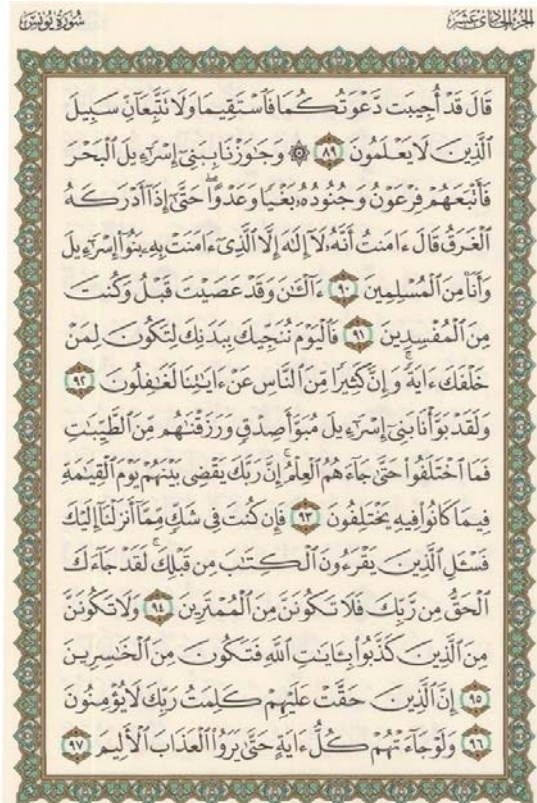 سُورَةُ يُونُسَ
الجُزْءُ الحَادِي عَشَرَ
قَالَ قَدْ أُجِيبَت دَّعْوَتُكُمَا فَٱسْتَقِيمَا وَلَا تَتَّبِعَآنِّ سَبِيلَ
ٱلَّذِينَ لَا يَعْلَمُونَ ٨٩ ۞ وَجَٰوَزْنَا بِبَنِىٓ إِسْرَٰٓءِيلَ ٱلْبَحْرَ
فَأَتْبَعَهُمْ فِرْعَوْنُ وَجُنُودُهُۥ بَغْيًا وَعَدْوًا ۖ حَتَّىٰٓ إِذَآ أَدْرَكَهُ
ٱلْغَرَقُ قَالَ ءَامَنتُ أَنَّهُۥ لَآ إِلَٰهَ إِلَّا ٱلَّذِىٓ ءَامَنَتْ بِهِۦ بَنُوٓا۟ إِسْرَٰٓءِيلَ
وَأَنَا۠ مِنَ ٱلْمُسْلِمِينَ ٩٠ ءَآلْـَٰٔنَ وَقَدْ عَصَيْتَ قَبْلُ وَكُنتَ
مِنَ ٱلْمُفْسِدِينَ ٩١ فَٱلْيَوْمَ نُنَجِّيكَ بِبَدَنِكَ لِتَكُونَ لِمَنْ
خَلْفَكَ ءَايَةً ۚ وَإِنَّ كَثِيرًا مِّنَ ٱلنَّاسِ عَنْ ءَايَٰتِنَا لَغَٰفِلُونَ ٩٢
وَلَقَدْ بَوَّأْنَا بَنِىٓ إِسْرَٰٓءِيلَ مُبَوَّأَ صِدْقٍ وَرَزَقْنَٰهُم مِّنَ ٱلطَّيِّبَٰتِ
فَمَا ٱخْتَلَفُوا۟ حَتَّىٰ جَآءَهُمُ ٱلْعِلْمُ ۚ إِنَّ رَبَّكَ يَقْضِى بَيْنَهُمْ يَوْمَ ٱلْقِيَٰمَةِ
فِيمَا كَانُوا۟ فِيهِ يَخْتَلِفُونَ ٩٣ فَإِن كُنتَ فِى شَكٍّ مِّمَّآ أَنزَلْنَآ إِلَيْكَ
فَسْـَٔلِ ٱلَّذِينَ يَقْرَءُونَ ٱلْكِتَٰبَ مِن قَبْلِكَ ۚ لَقَدْ جَآءَكَ
ٱلْحَقُّ مِن رَّبِّكَ فَلَا تَكُونَنَّ مِنَ ٱلْمُمْتَرِينَ ٩٤ وَلَا تَكُونَنَّ
مِنَ ٱلَّذِينَ كَذَّبُوا۟ بِـَٔايَٰتِ ٱللَّهِ فَتَكُونَ مِنَ ٱلْخَٰسِرِينَ
٩٥ إِنَّ ٱلَّذِينَ حَقَّتْ عَلَيْهِمْ كَلِمَتُ رَبِّكَ لَا يُؤْمِنُونَ
٩٦ وَلَوْ جَآءَتْهُمْ كُلُّ ءَايَةٍ حَتَّىٰ يَرَوُا۟ ٱلْعَذَابَ ٱلْأَلِيمَ ٩٧